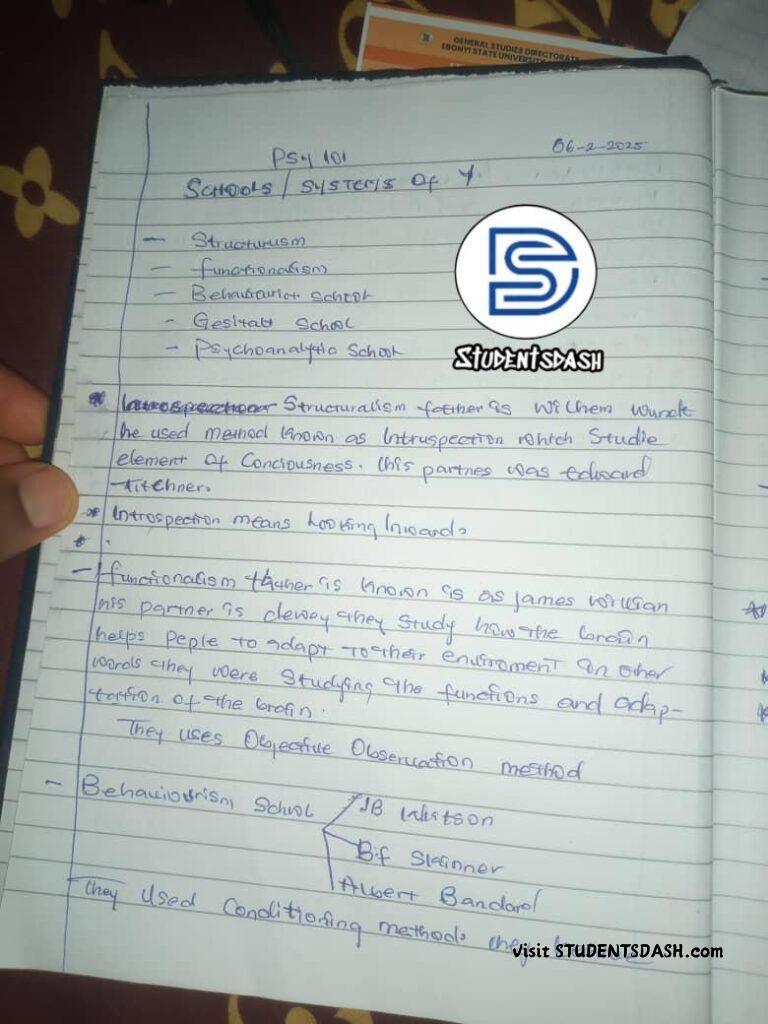 GENERAL STUDIES DIRECTORATE
EBONYI STATE UNIVERSITY
PSY 101
06-2-2025
SCHOOLS / SYSTEMS OF Y
- Structurism
- functionalism
- Behaviourist School
- Gestalt School
- Psychoanalytic School
STUDENTSDASH
* Structuralism father is Wilhem Wundt
he used method known as Introspection which Studie
element of Conciousness. his partner was Edward
titchner.
* Introspection means Looking Inwards
*
- functionalism father is known is as James William
his partner is dewey they study how the brain
helps peple to adapt to their enviroment in other
words they were studying the functions and adap-
tation of the brain.
They uses Objective Observation method
- Behaviourism School
JB Watson
B.f Skinner
Albert Bandard
They Used Conditioning methods they
visit STUDENTSDASH.com